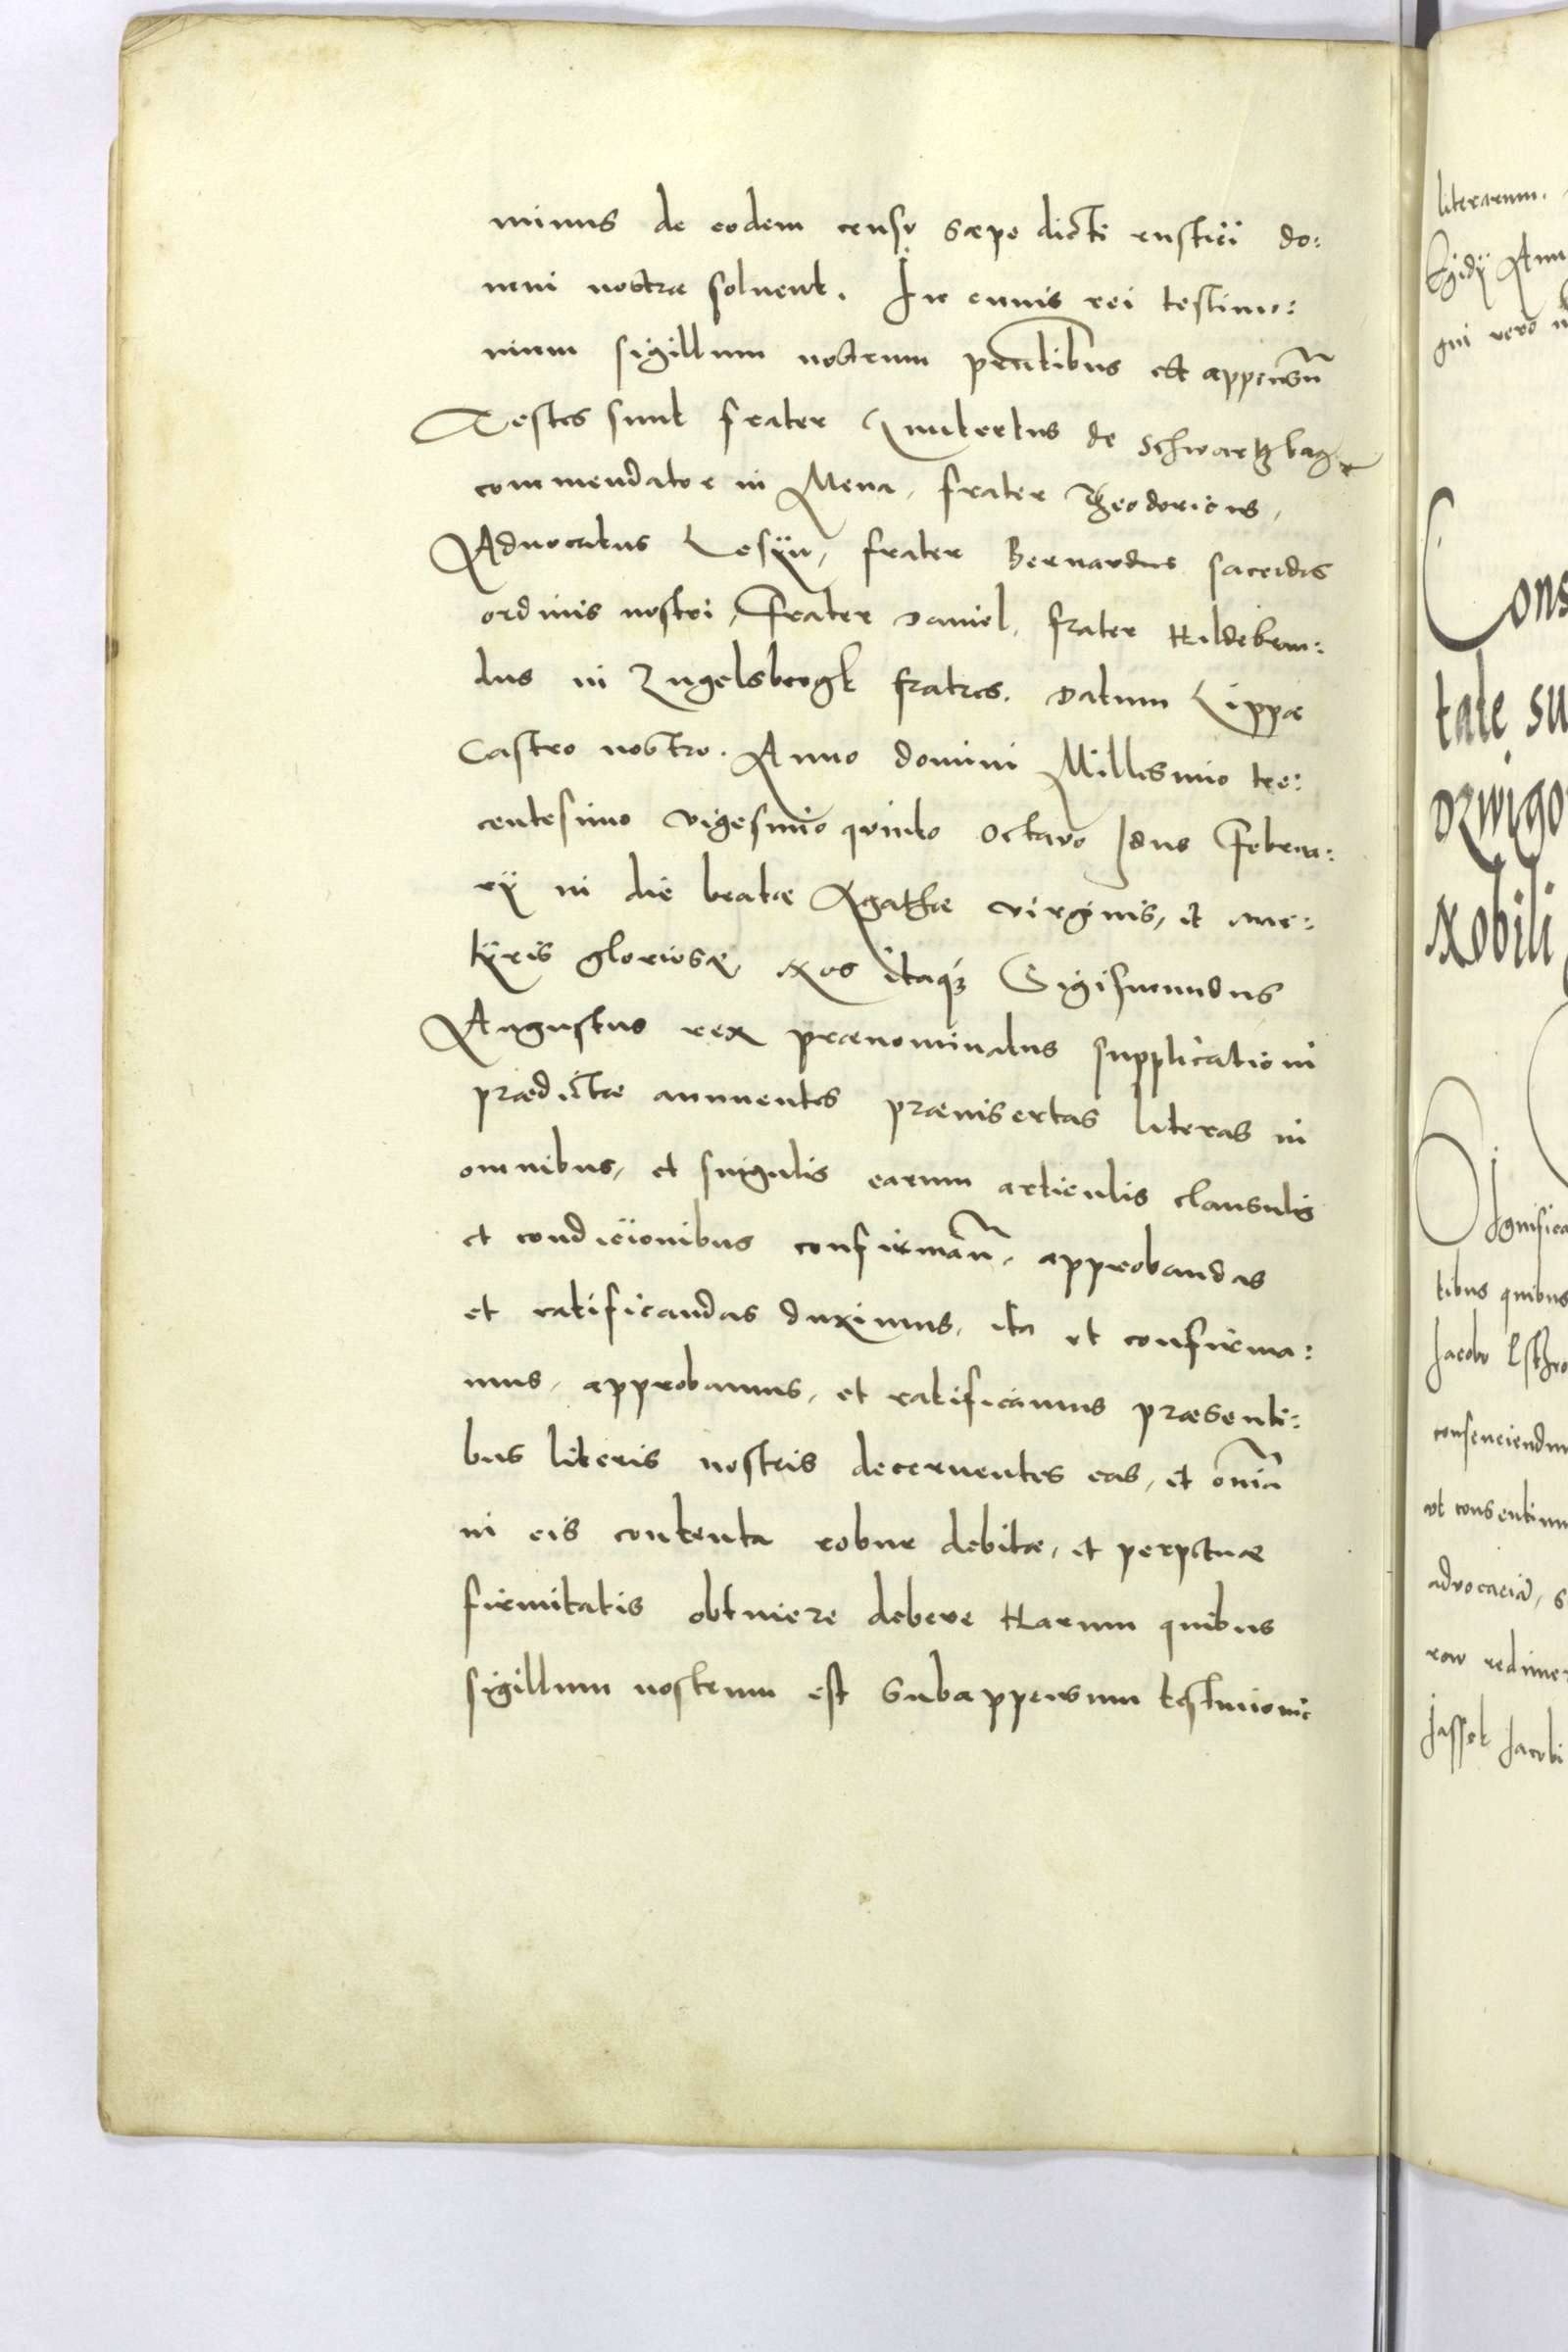 minus de eodem censu sæpe dicti rustici do:
mui nostræ soluent. In cuius rei testimo:
nium sigillum nostrum pñtibus est appensũ
Testes sunt frater de Schwartzbag
commendator in Mena, frater Theodoricus,
Aduocatus Lesÿn, frater Bernardus sacerdos
ordinis nostri, Frater Daniel, frater Hildebran:
dus in Engelsbergk fratres. Datum Lippæ
Castro nostro. Anno domini Millesimo tre:
centesimo vigesimo quinto octavo Idus Februa:
rÿ in die beatæ Agathæ virginis, et mar:
tÿris gloriosæ, Nos itaq3 Sigismundus
Augustus rex prænominatus supplicationi
prædictæ annuentes præinsertas literas in
omnibus, et singulis earum articulis clausulis
et condicionibus confirmañ, approbandas
et ratificandas duximus, ita ut confirma:
mus, approbamus, et ratificamus præsenti:
bus literis nostris decernentes eas, et oñia
in eis contenta robur debitæ, et perpetuæ
firmitatis obtinere debere Harum quibus
sigillum nostrum est subappensum testimonio
literarum.
Egidÿ Ann
gni vero
Cons
tate su
Nobili
Ignifica
tibus quibus
Jacobo
consenciendum
vt consentimu
advocaciã, s
row redime
Jassek Jacobi